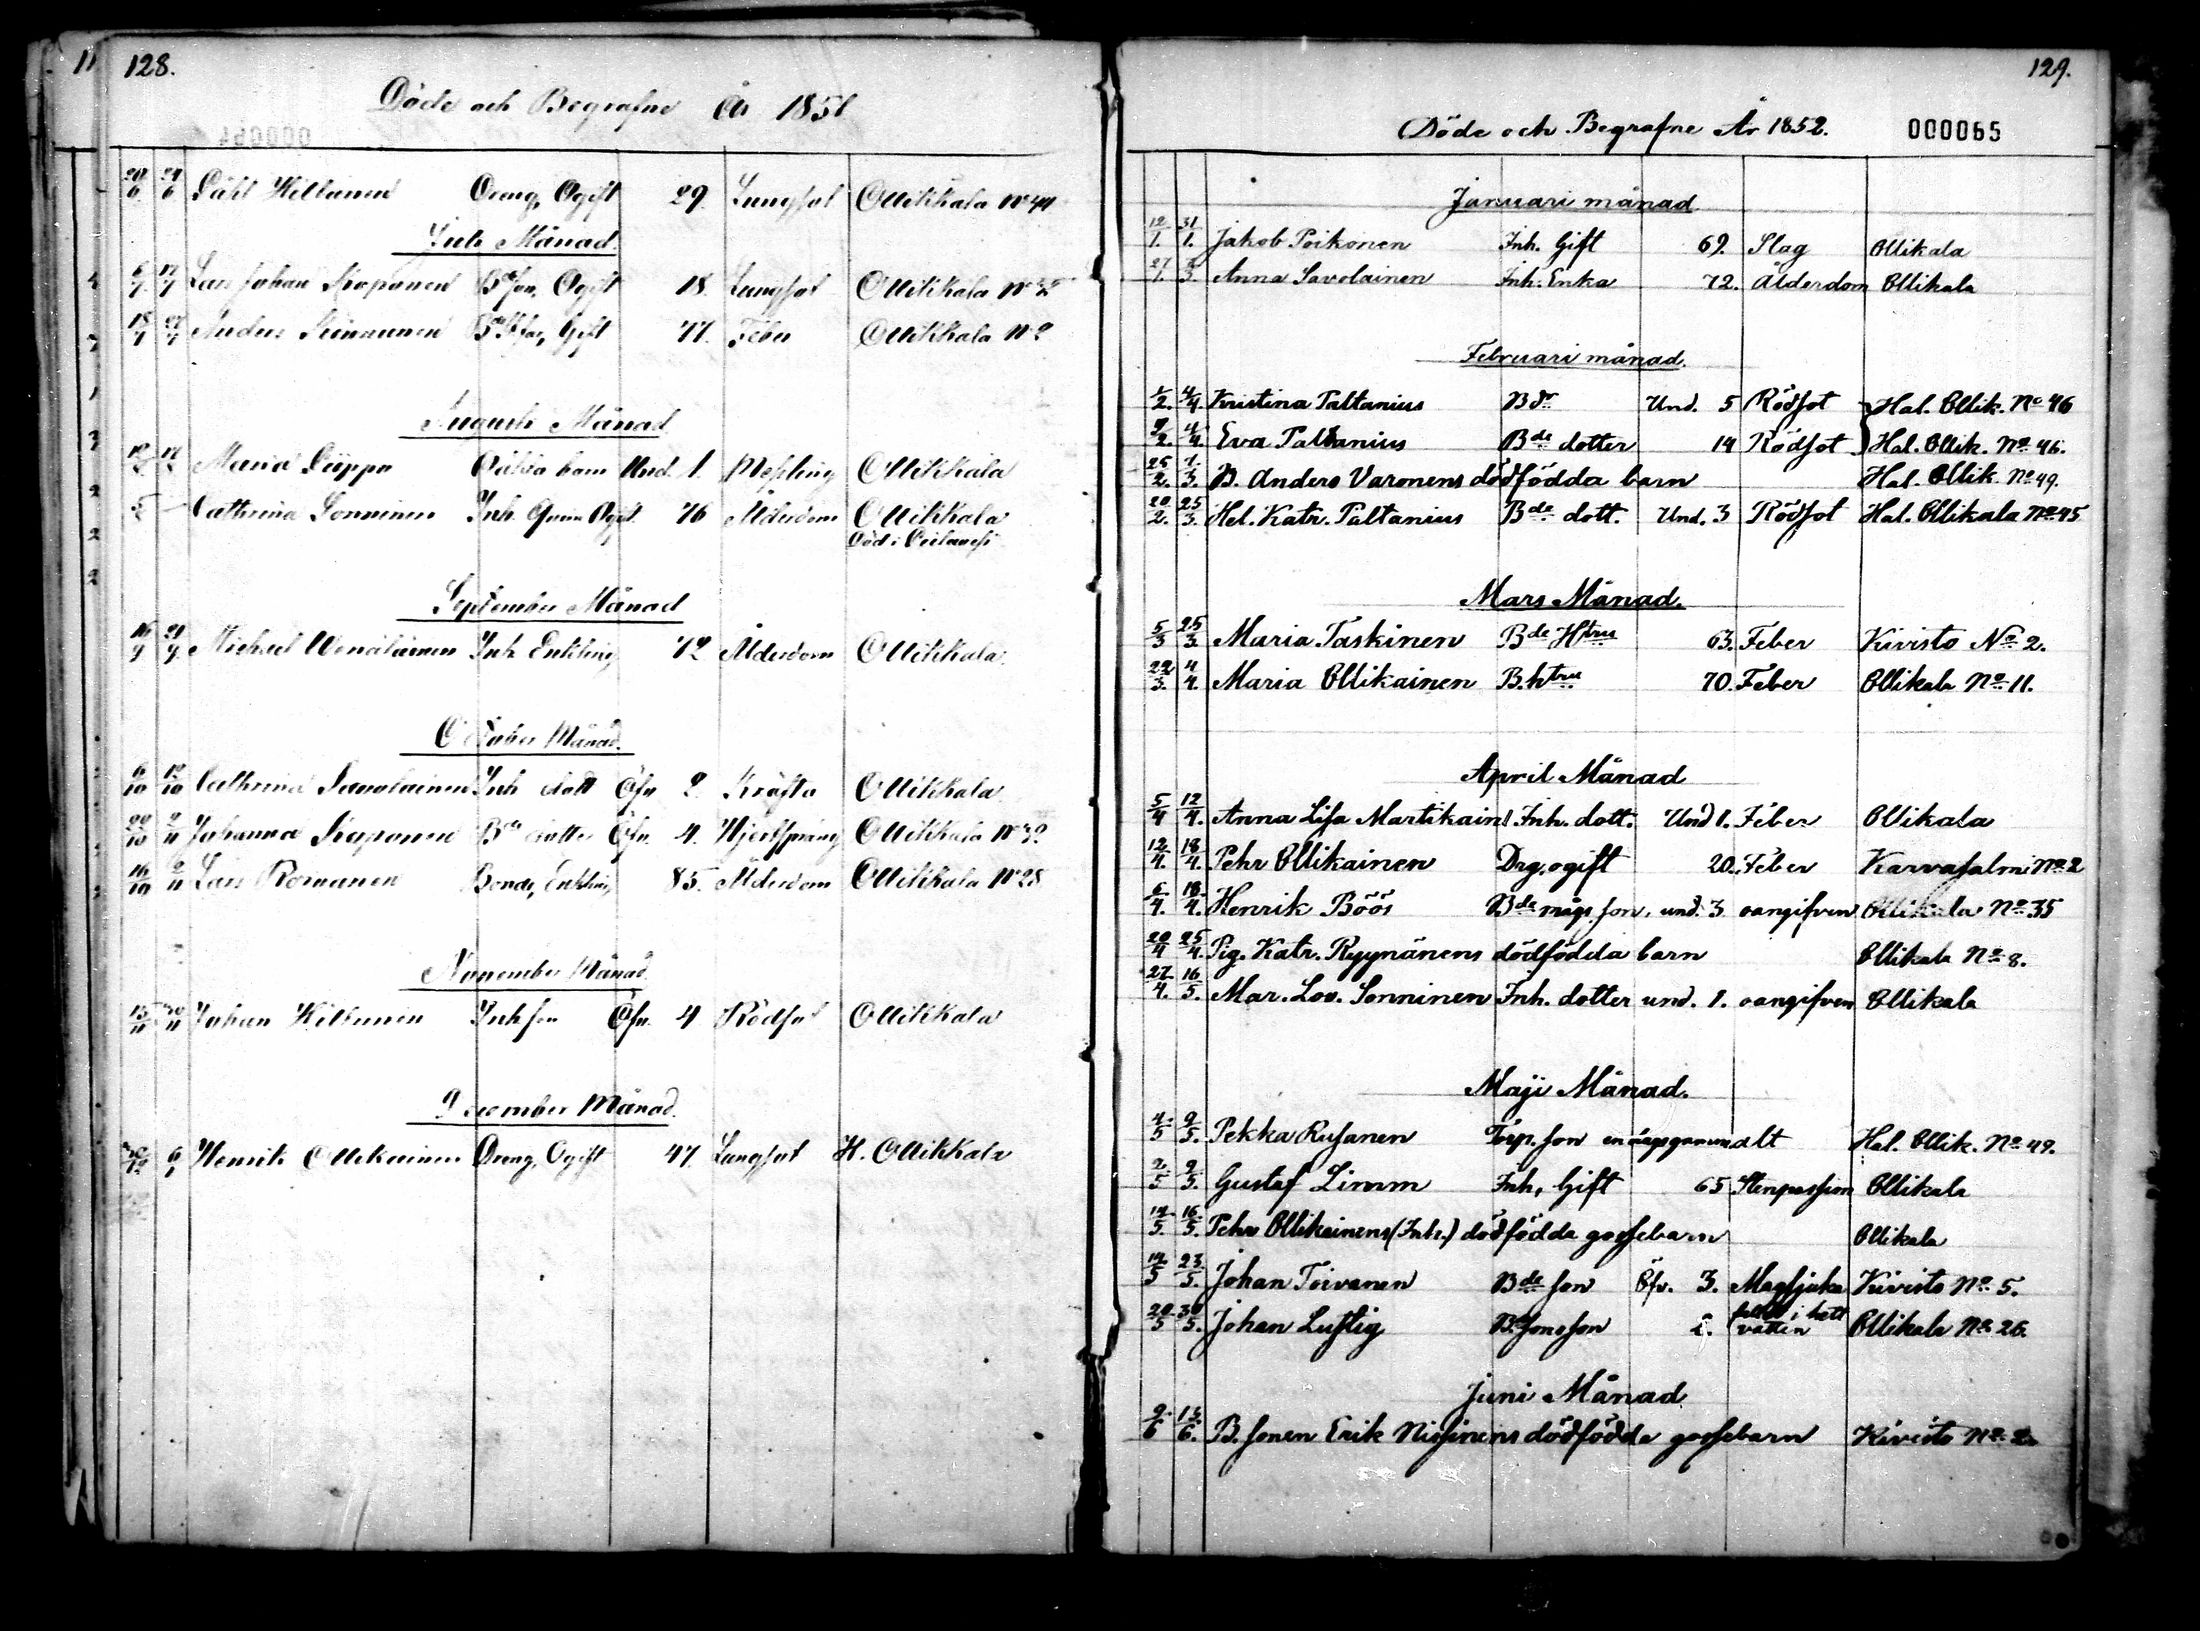 128.
Döde och Begrafne År 1851
20/6 Kiltunen Dreng, Ogift 29. Lungsot Ollikkala No 44
Juli Månad.
6/7 Lars Johan Kaponen Bdeson, Ogift 18. Lungsot Ollikkala No 32
18/7 Anders Kinnunen Gift 77. Feber Ollikkala No 2
Augusti Månad
Maria Piippo barn Und. 1. Messling Ollikkala
Cathrina Sonninen Inh. Ogift 76 Ålderdom Ollikkala
Död i
September Månad
16/9 21/9 Michael Wenäläinen Inh Enkling 72 Ålderdom Ollikkala
October Månad.
6/10 12/10 Cathrina Savolainen Inh dott Öfv 2. Kräfta Ollikkala
20/10 2/11 Johanna Kaponen Bde dotter Öfv. 4. Hjertsprång Ollikkala No 32
16/10 2/11 Lars Romanen Bonde, Enkling 85. Ålderdom Ollikkala No 28
November Månad.
15/11 30/11 Johan Kiltunen Inh son Öfv. 4 Rödsot Ollikkala
December Månad.
Henrik Ollikainen Dreng, Ogift 47. Lungsot H. Ollikkala
129.
Döde och Begrafne År 1852. 000065
Januari månad
12/1. 31/1. Jakob Poikonen Inh. Gift 69. Slag Ollikala
27/1. Anna Savolainen Inh. Enka 72. Ålderdom Ollikala
Februari månad.
1/2. 4/4. Kristina Paltanius Bdr Und. 5 Rödsot Hal. Ollik. No 46
9/2. 4/4. Eva Paltanius Bde dotter 14 Rödsot Hal. Ollik. No 46.
25/2. 1/3. B. Anders Varonens dödfödda barn Hal. Ollik. No 49.
20/2. 25/3. Hel. Katr. Paltanius Bde dott. Und. 3 Rödsot Hal. Ollikala No 45
Mars Månad.
5/3 25/3. Maria Taskinen Bde Htru 63. Feber Kivisto No 2.
22/3. 4/4. Maria Ollikainen B. htru 70. Feber Ollikala No 11.
April Månad
5/4 12/4. Anna Lisa Martikain. Inh. dott. Und 1. Feber Ollikala
12/4. 18/4. Pehr Ollikainen Drg. ogift 20. Feber Karvasalmi No 2
6/4. 18/4. Henrik Böös Bde mågs son. und. 3 oangifven Ollikala No 35
20/4 25/4. Pig. Katr. Ryynänens dödfödda barn Ollikala No 8.
27/4. 16/5. Mar. Lov. Sonninen Inh. dotter und. 1. oangifven Ollikala
Maji Månad.
4/5 9/5. Pekka Rusanen Torp. son en dags gammalt Hal. Ollik. No 49.
2/5 9/5. Gustaf Limm Inh. Gift 65 Stenpassion Ollikala
14/5. 16/5. Pehr Ollikainens (Inh.) dödfödda gossebarn Ollikala
14/5 23/5. Johan Toivanen Bde son Öfv. 3. Magsjuka Kivisto No 5.
20/5 30/5. Johan Lustig B. sonsson 2. fallit i hett vatten Ollikala No 26.
Juni Månad
9/6 13/6. B. sonen Erik Nissinens dödfödda gossebarn Kivisto No 2.